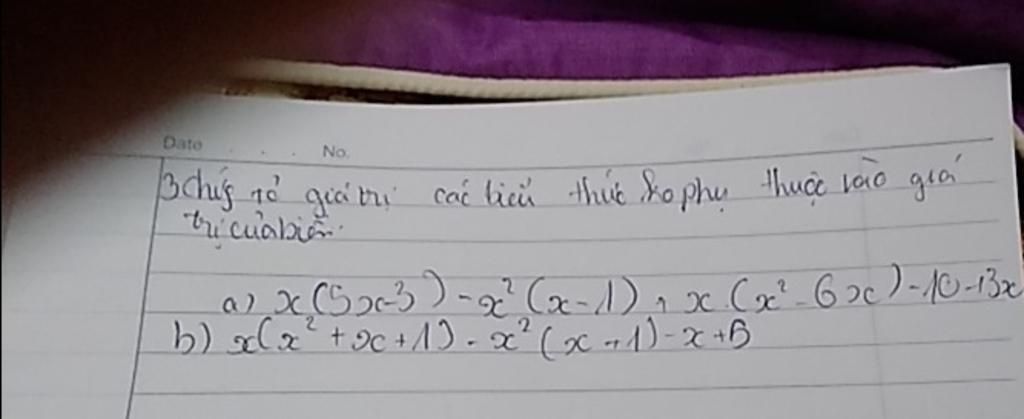 Date . . . No.
3 chứg tỏ giá trị các biểu thức ko phụ thuộc vào giá
trị của biến.
a) x(5x-3) - x²(x-1) + x(x²-6x) - 10 + 3x
b) x(x²+x+1) - x²(x+1) - x + 5